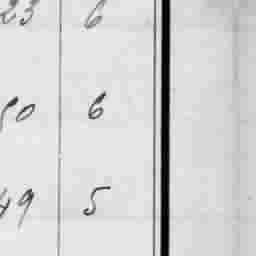 23 6
50 6
49 5